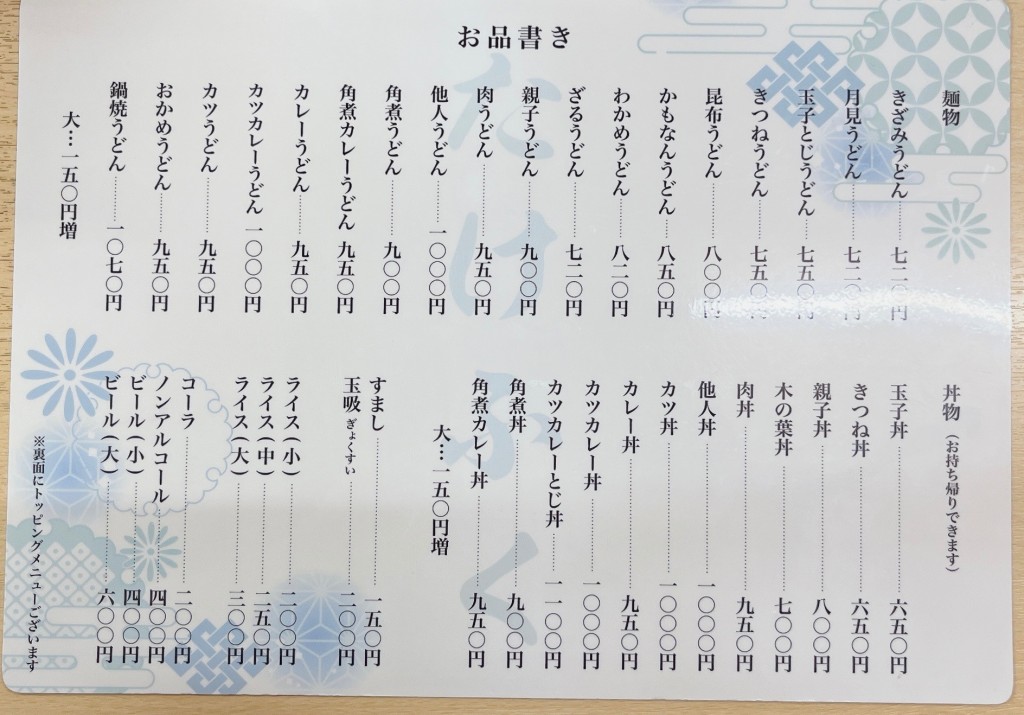 お品書き
たけふく
麺物
きざみうどん……七二〇円
月見うどん……七二〇円
玉子とじうどん……七五〇円
きつねうどん……七五〇円
昆布うどん……八〇〇円
かもなんうどん……八五〇円
わかめうどん……八二〇円
ざるうどん……七二〇円
親子うどん……九〇〇円
肉うどん……九五〇円
他人うどん……一〇〇〇円
角煮うどん……九〇〇円
角煮カレーうどん 九五〇円
カレーうどん……九五〇円
カツカレーうどん 一〇〇〇円
カツうどん……九五〇円
おかめうどん……九五〇円
鍋焼うどん……一〇七〇円
大…一五〇円増
丼物(お持ち帰りできます)
玉子丼……六五〇円
きつね丼……六五〇円
親子丼……八〇〇円
木の葉丼……七〇〇円
肉丼……九五〇円
他人丼……一〇〇〇円
カツ丼……一〇〇〇円
カレー丼……九五〇円
カツカレー丼……一〇〇〇円
カツカレーとじ丼……一一〇〇円
角煮丼……九〇〇円
角煮カレー丼……九五〇円
大…一五〇円増
すまし……一五〇円
玉吸 ぎょくすい……二〇〇円
ライス(小)……二〇〇円
ライス(中)……二五〇円
ライス(大)……三〇〇円
コーラ……二〇〇円
ノンアルコール……四〇〇円
ビール(小)……四〇〇円
ビール(大)……六〇〇円
※裏面にトッピングメニューございます